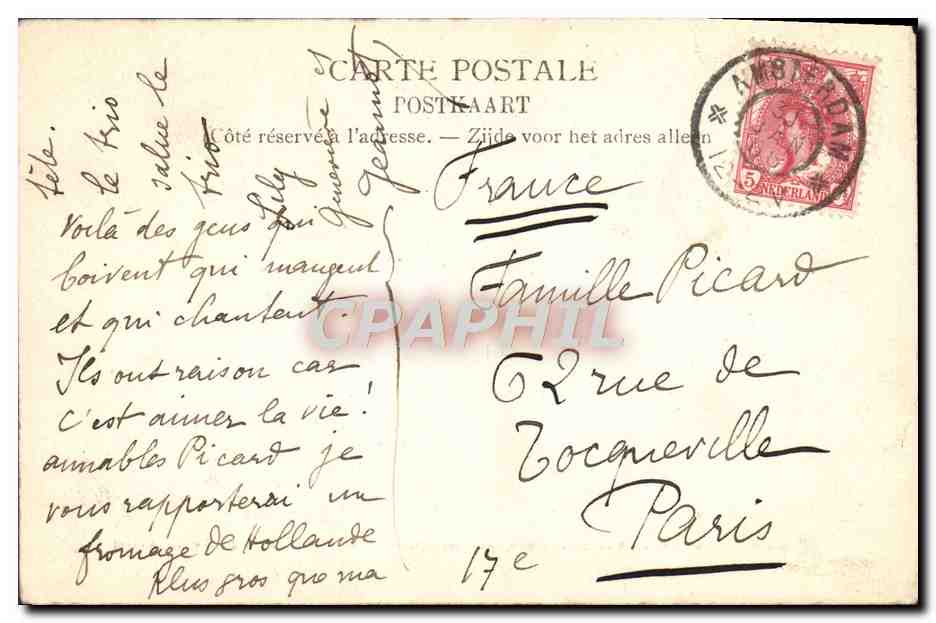 CARTE POSTALE
POSTKAART
Côté réservé à l'adresse. — Zijde voor het adres alleen
AMSTERDAM
12
5 NEDERLAND
CPAPHIL
Voilà des gens qui
boivent qui mangent
et qui chantent.
Ils ont raison car
c'est aimer la vie!
aimables Picard je
vous rapporterai un
fromage de Hollande
plus gros que ma
tête.
le trio
salue le
trio
Jeannot
France
Famille Picard
62 rue de
Tocqueville
Paris
17e